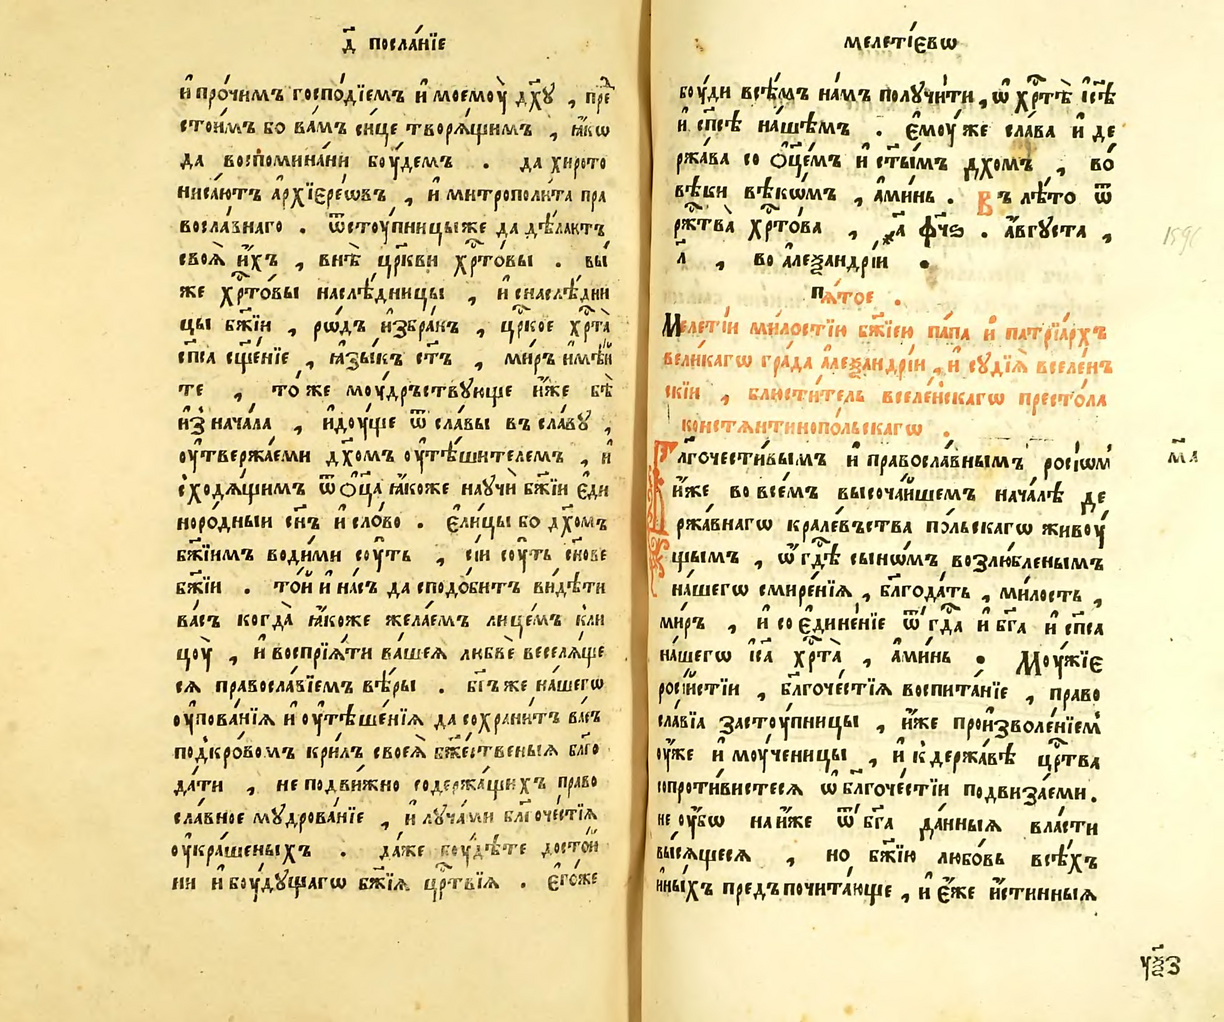 д҃ посла́нїе
и҆ про́чимъ господі́емъ и҆ моемоу̀ дх҃ꙋ , пре
стои́мъ бо ва́мъ си́це творѧ́щимъ , ꙗ҆́кѡ
да воспомина́ни боу́демъ . да хирото
ниса́ютъ а҆рхїєре́ѡвъ , и҆ митрополи́та пра
восла́внаго . ѿстоу́пницы же да дѣ́лаютъ
своѧ̀ и҆́хъ , внѣ̀ цр҃кви хр҃то́вы . вы́
же хр҃то́вы наслѣ́дницы , и҆ снаслѣ́дни
цы бж҃їи , рѡ́дъ и҆збра́нъ , цр҃кое хр҃та̀
сп҃са сщ҃е́нїе , ꙗ҆зы́къ ст҃ъ , ми́ръ и҆мѣ́й
те , то́ же моу́дръствꙋюще и҆́же бѣ̀
и҆з̾ нача́ла , и҆доу́ще ѿ сла́вы въ сла́вꙋ ,
оу҆твержа́еми дх҃омъ оу҆тѣ́шителемъ , и҆
сходѧ́щимъ ѿ ѻ҆ц҃а̀ ꙗ҆́коже наꙋчѝ бж҃їи є҆ди
норо́дныи сн҃ъ и҆ сло́во . є҆ли́цы бо дх҃омъ
бж҃їимъ води́ми соу́ть , сі́и соу́ть сн҃ове
бж҃їи . то́й и҆ на́съ да сподо́битъ ви́дѣти
ва́съ когда̀ ꙗ҆́коже жела́емъ лице́мъ к̾ли
цоу̀ , и҆ воспрїѧ́ти ва́шеѧ любвѐ веселѧ́ще
сѧ правосла́вїемъ вѣ́ры . бг҃ъ же на́шегѡ
оу҆пова́нїѧ и҆ оу҆тѣше́нїѧ да сохрани́тъ ва́съ
под̾кро́вомъ кри́лъ своеѧ̀ бж҃е́ственыѧ бл҃го
да́ти , не подви́жно содержа́щихъ право
сла́вное мꙋдрова́нїе , и҆ лꙋча́ми бл҃гоче́стїѧ
оу҆кра́шеныхъ . да́же боу́дѣте досто́й
ни и҆ боу́дꙋщагѡ бж҃їѧ цр҃твїѧ . є҆го́же
меле́тїєвѡ
боу́ди всѣ́мъ на́мъ полꙋчи́ти , ѡ҆ хр҃тѣ̀ і҆с҃ѣ
и҆ сп҃сѣ на́шѣмъ . є҆моу́ же сла́ва и҆ де
ржа́ва со ѻ҆ц҃е́мъ и҆ ст҃ы́мъ дх҃омъ , во́
вѣ́ки вѣкѡ́мъ , а҆ми́нь . Въ лѣ́то ѿ
рж҃тва̀ хр҃то́ва , ҂а҃ фч҃ѕ . а҆́вгꙋста ,
л҃ , во а҆леѯандрі́и .
пѧ́тое .
Меле́тїи ми́лостїю бж҃їею па́па и҆ патрїа́рхъ
вели́кагѡ гра́да а҆леѯандрі́и , и҆ сꙋдїѧ̀ вселе́н
скїи , блюсти́тель вселе́нскагѡ престо́ла
констѧнтинопо́льскагѡ .
Бл҃гочести́вымъ и҆ правосла́внымъ росі́ѡм
и҆́же во все́мъ высоча́йшемъ нача́лѣ де
ржа́внагѡ крале́въства по́льскагѡ живоу́
щымъ , ѡ҆ гд҃ѣ сынѡ́мъ возлю́бленымъ
на́шегѡ смире́нїѧ , бл҃года́ть , ми́лость ,
ми́ръ , и҆ со є҆дине́нїе ѿ гд҃а и҆ бг҃а и҆ сп҃са
на́шегѡ і҆с҃а хр҃та̀ , а҆ми́нь . Моу́жїє
росі́йстїи , бл҃гоче́стїѧ воспита́нїе , право
сла́вїа застоу́пницы , и҆́же произволе́нїем
оу҆́же и҆ моу́ченицы , и҆ к̾ держа́вѣ цр҃тва
сопроти́вистесѧ ѡ҆ бл҃гоче́стїи подвиза́еми .
не оу҆́бѡ на и҆́же ѿ бг҃а да́нныѧ вла́сти
высѧ́щесѧ , но бж҃їю любо́вь всѣ́хъ
и҆ны́хъ пред̾почита́юще , и҆ є҆́же и҆́стинныѧ
м҃а
1596
уѯ҃з